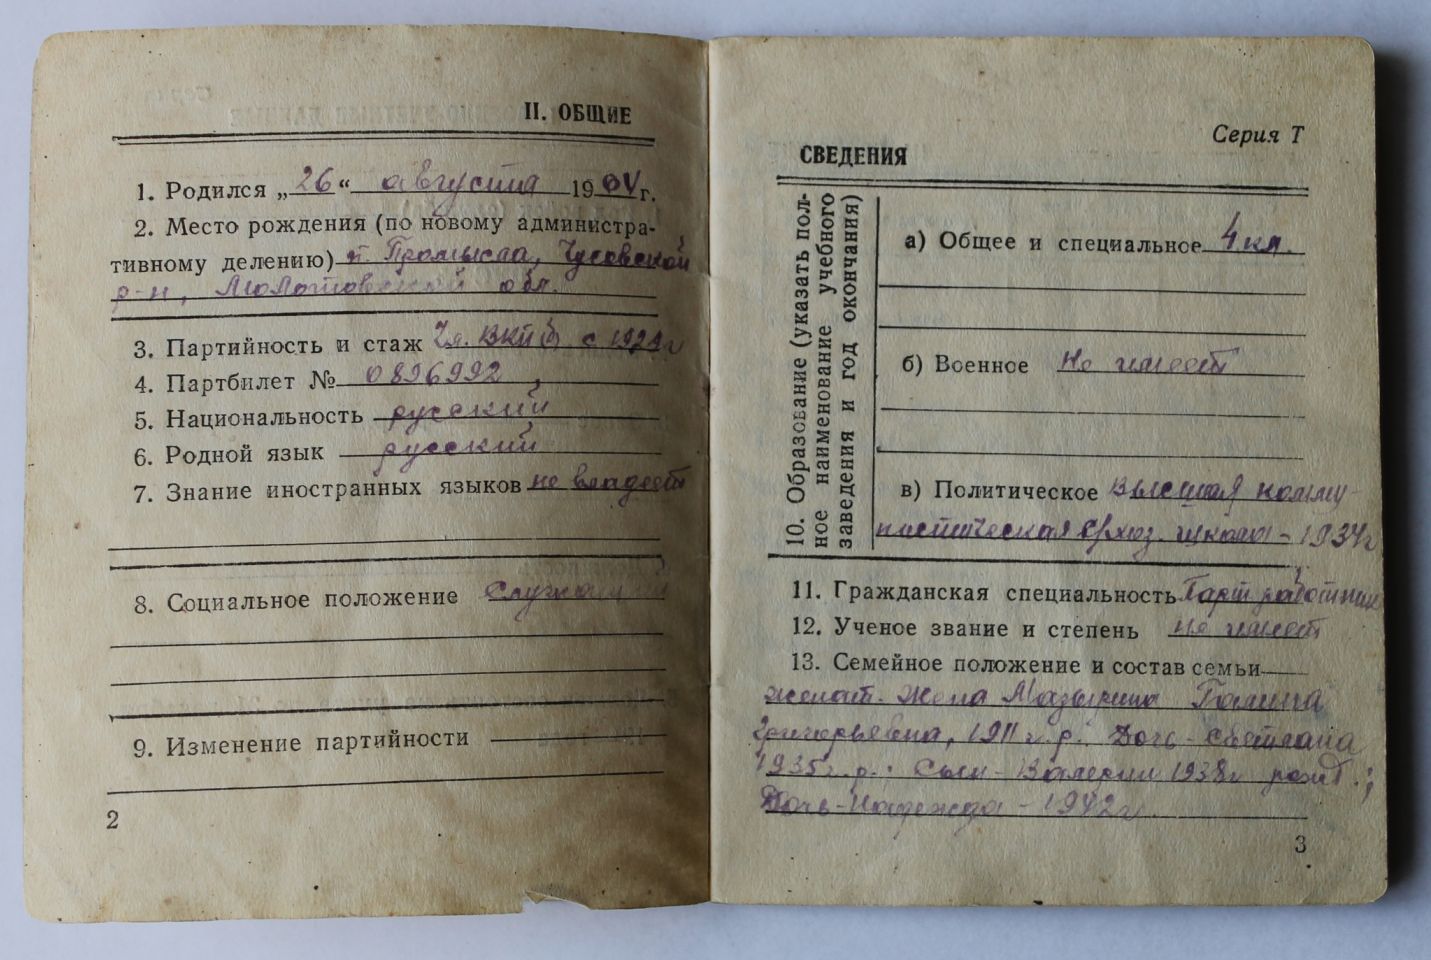 II. ОБЩИЕ
1. Родился „26“ августа 1904 г.
2. Место рождения (по новому администра-
тивному делению) п. Промысла, Чусовской
р-н, Молотовской обл.
3. Партийность и стаж Чл. ВКП(б) с 1929 г
4. Партбилет № 0896992
5. Национальность русский
6. Родной язык русский
7. Знание иностранных языков не владеет
8. Социальное положение Служащий
9. Изменение партийности
2
Серия Т
СВЕДЕНИЯ
10. Образование (указать пол-
ное наименование учебного
заведения и год окончания)
а) Общее и специальное 4 кл.
б) Военное Не имеет
в) Политическое Высшая комму-
нистическая с/хоз. школа - 1934 г
11. Гражданская специальность Парт работник
12. Ученое звание и степень не имеет
13. Семейное положение и состав семьи
женат. Жена Мазырина Галина
Григорьевна, 1911 г. р. Дочь - Светлана
1935 г. р.; Сын - Валерий 1938 г рожд.;
Дочь - Надежда - 1942 г.
3